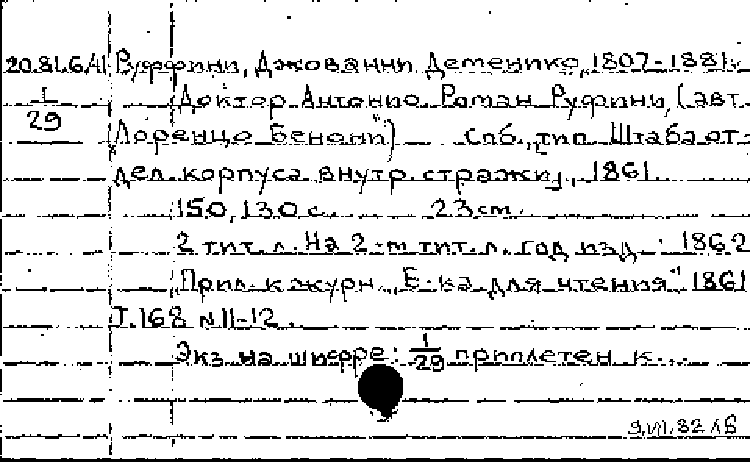 20.81.6.41 Руффини, Джованни Доменико, 1807-1881.
1/29 Доктор Антонио. Роман Руфини, (авт.
"Лоренцо Бенони") Спб., тип. Штаба от-
дел. корпуса внутр. стражи, 1861.
150, 130 с. 23 см.
2 тит. л. На 2-м тит. л. год изд.: 1862
Прил. к журн. "Б-ка для чтения" 1861
Т.168 № 11-12.
Экз. на шифре: 1/29 приплетен к...